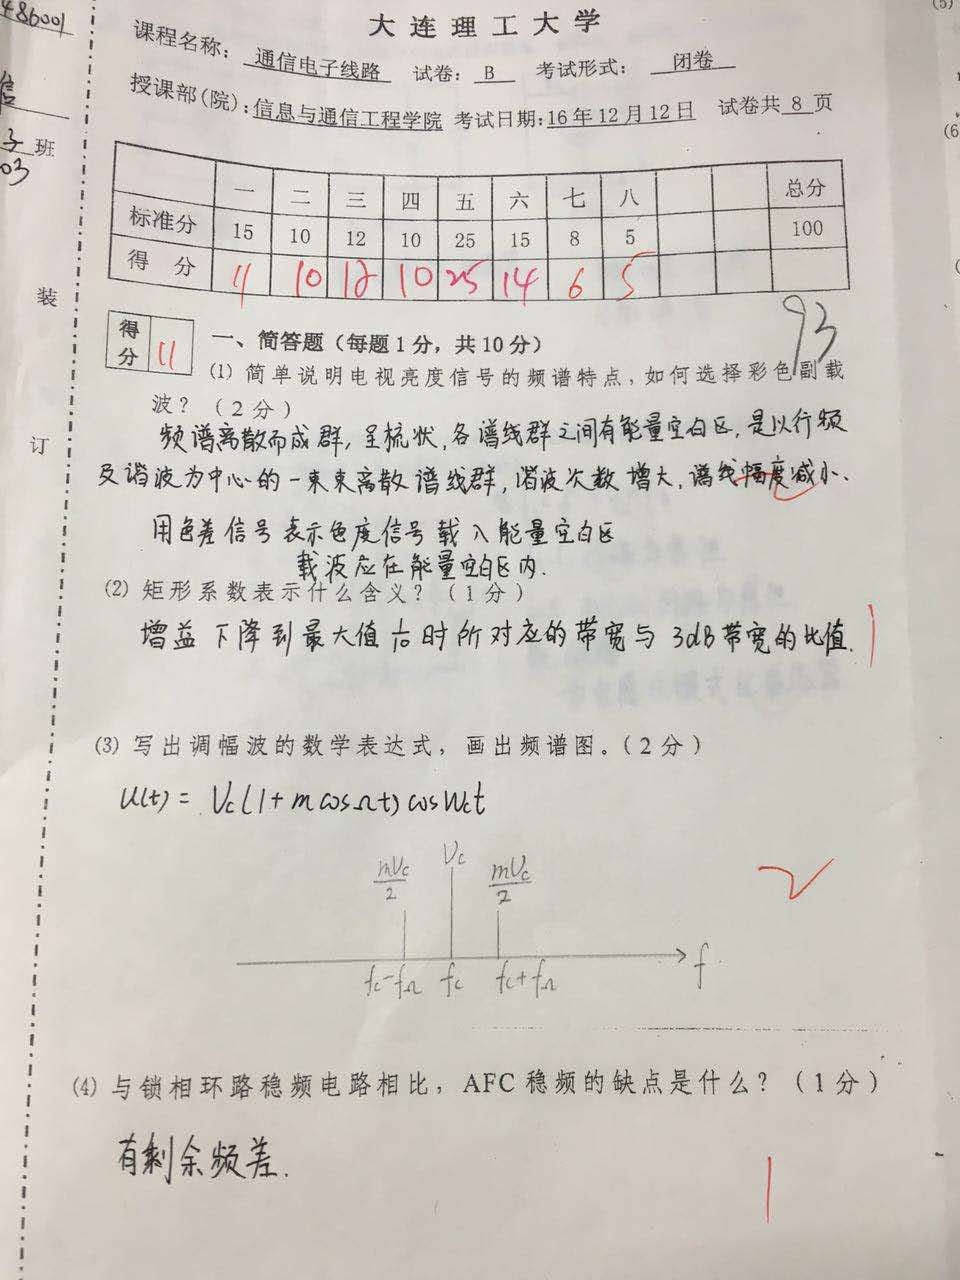 486001
大连理工大学
课程名称: 通信电子线路 试卷: B 考试形式: 闭卷
授课部(院): 信息与通信工程学院 考试日期: 16年12月12日 试卷共 8 页
信
班
03
一 二 三 四 五 六 七 八 总分
标准分 15 10 12 10 25 15 8 5 100
得 分 11 10 12 10 25 14 6 5
93
装
订
得分 11
一、简答题（每题1分，共10分）
(1) 简单说明电视亮度信号的频谱特点，如何选择彩色副载
波？（2分）
频谱离散而成群, 呈梳状, 各谱线群之间有能量空白区, 是以行频
及谐波为中心的一束束离散谱线群, 谐波次数增大, 谱线幅度减小.
用色差信号表示色度信号载入能量空白区
载波应在能量空白区内.
(2) 矩形系数表示什么含义？（1分）
增益下降到最大值 时所对应的带宽与3dB带宽的比值. 1
(3) 写出调幅波的数学表达式，画出频谱图。（2分）
u(t) = Vc(1+m cosΩt) cosWct
mVc/2 Vc mVc/2
fc-fΩ fc fc+fΩ f
2
(4) 与锁相环路稳频电路相比，AFC稳频的缺点是什么？（1分）
有剩余频差.
1
(5)
(6